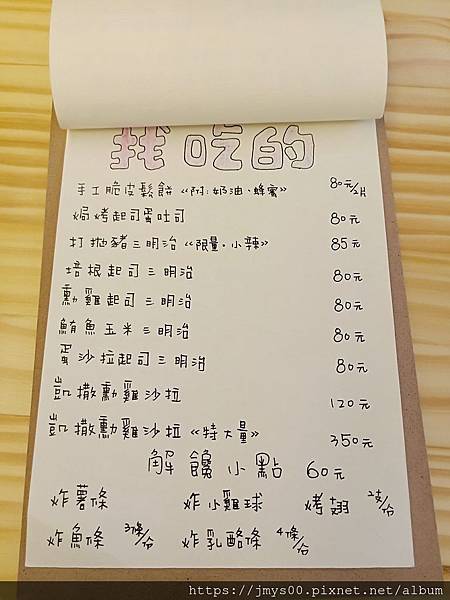 找吃的
手工脆皮鬆餅 《附:奶油、蜂蜜》 80元/2片
焗烤起司蛋吐司 80元
打拋豬三明治 《限量。小辣》 85元
培根起司三明治 80元
勳雞起司三明治 80元
鮪魚玉米三明治 80元
蛋沙拉起司三明治 80元
凱撒勳雞沙拉 120元
凱撒勳雞沙拉 《特大量》 350元
解饞小點 60元
炸薯條 炸小雞球 烤翅 2支/份
炸魚條 3條/份 炸乳酪條 4條/份
https://jmys00.pixnet.net/album